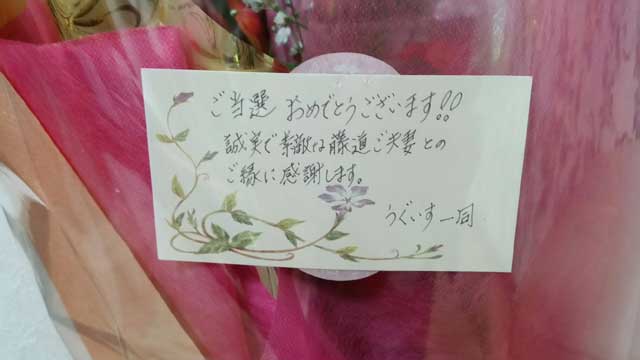 ご当選 おめでとうございます!!
誠実で素敵な藤道ご夫妻との
ご縁に感謝します。
うぐいす一同